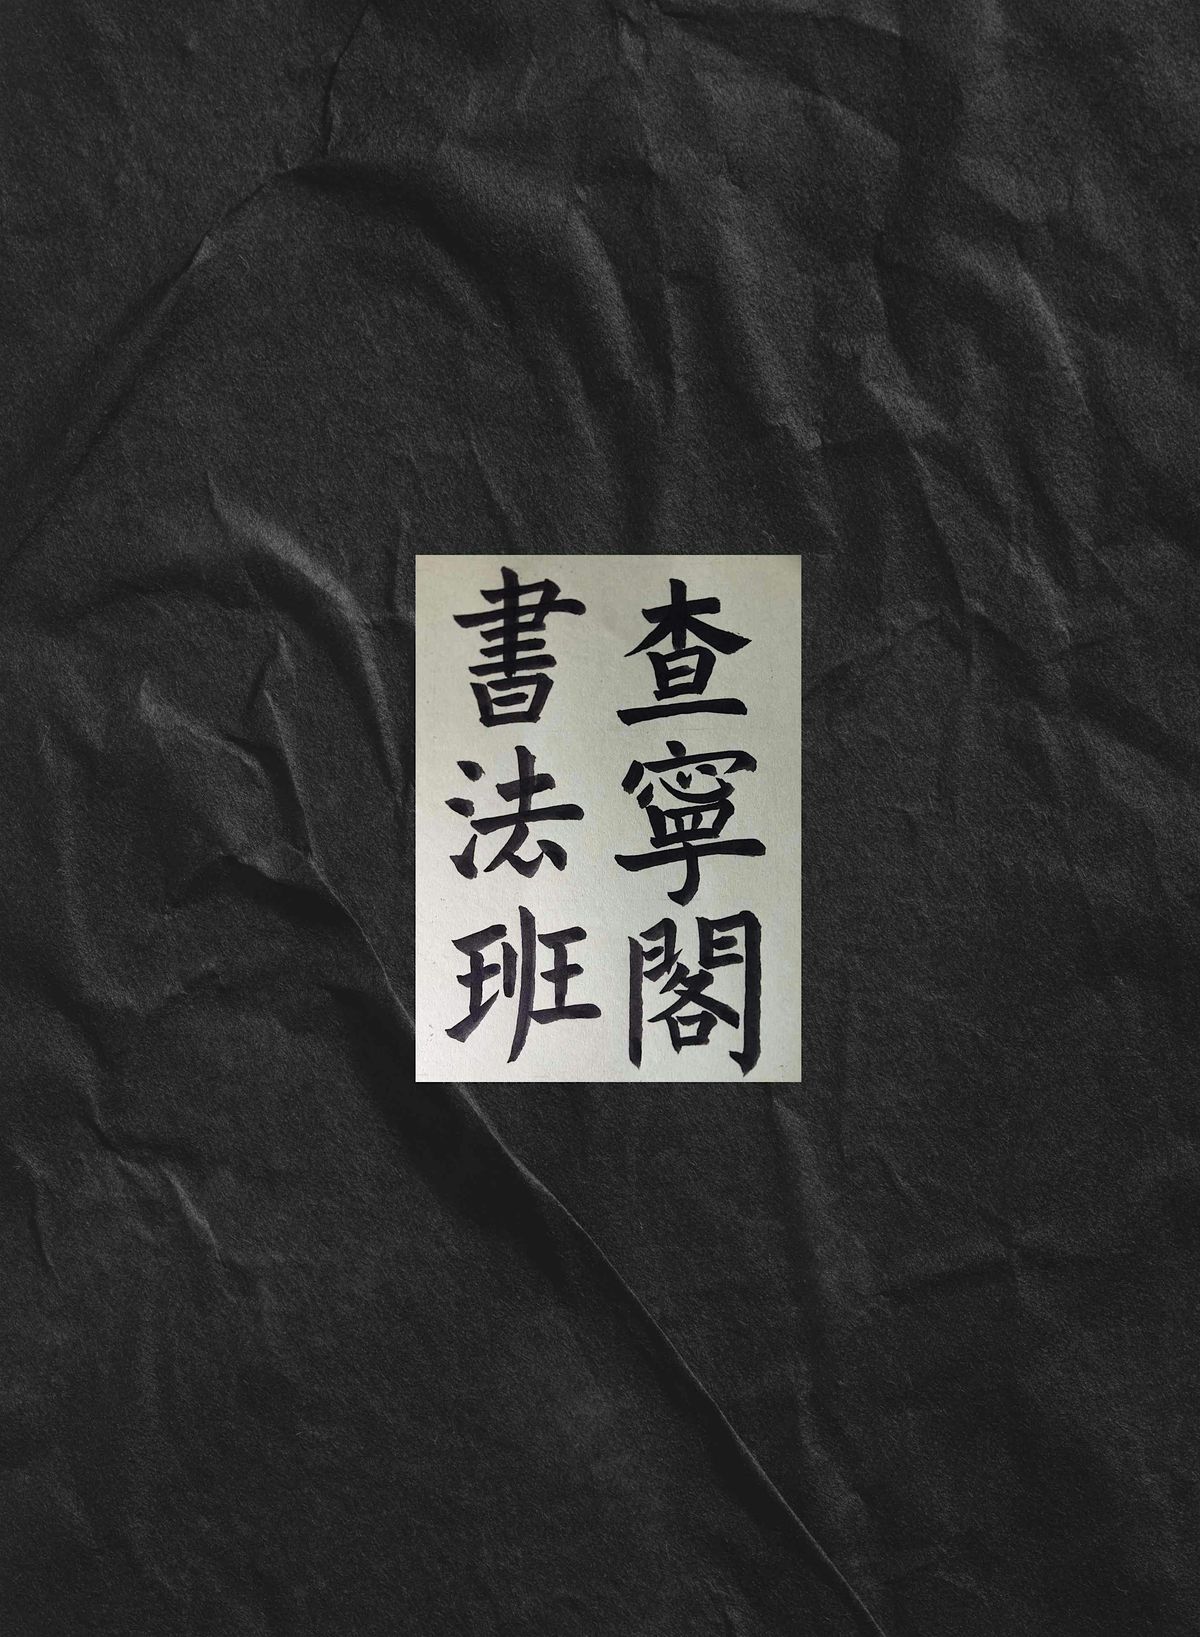 查寧閣
書法班